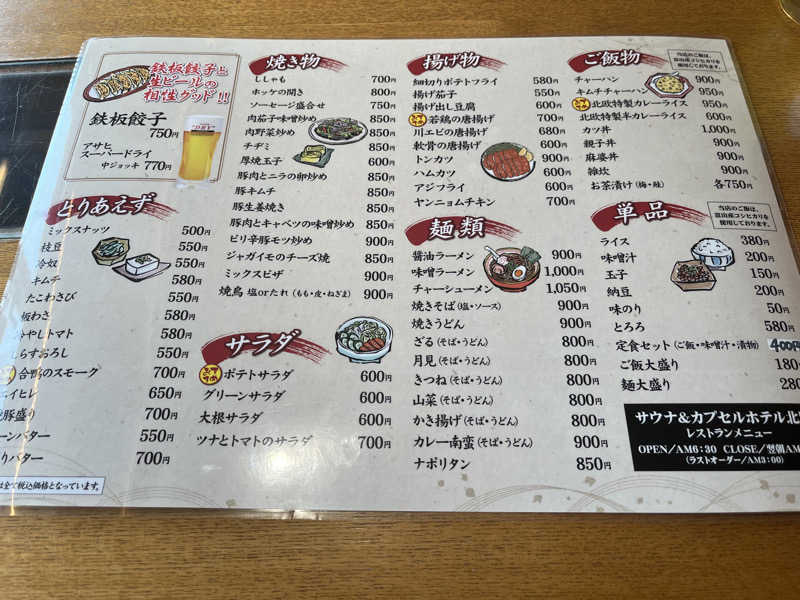 鉄板餃子と
生ビールの
相性グッド!!
鉄板餃子
750円
アサヒ
スーパードライ
中ジョッキ 770円
とりあえず
ミックスナッツ 500円
枝豆 550円
冷奴 550円
キムチ 580円
たこわさび 550円
板わさ 580円
やしトマト 580円
らすおろし 550円
合鴨のスモーク 700円
エイヒレ 650円
豚盛り 700円
ーンバター 550円
りバター 700円
は全て税込価格となっています。
焼き物
ししゃも 700円
ホッケの開き 800円
ソーセージ盛合せ 750円
肉茄子味噌炒め 850円
肉野菜炒め 850円
チヂミ 850円
厚焼玉子 600円
豚肉とニラの卵炒め 850円
豚キムチ 850円
豚生姜焼き 850円
豚肉とキャベツの味噌炒め 850円
ピリ辛豚モツ炒め 900円
ジャガイモのチーズ焼 850円
ミックスピザ 900円
焼鳥 塩orたれ(もも・皮・ねぎま) 900円
サラダ
ポテトサラダ 600円
グリーンサラダ 600円
大根サラダ 600円
ツナとトマトのサラダ 700円
揚げ物
細切りポテトフライ 580円
揚げ茄子 550円
揚げ出し豆腐 600円
若鶏の唐揚げ 700円
川エビの唐揚げ 680円
軟骨の唐揚げ 600円
トンカツ 900円
ハムカツ 600円
アジフライ 600円
ヤンニョムチキン 700円
麺類
醤油ラーメン 900円
味噌ラーメン 1,000円
チャーシューメン 1,050円
焼きそば(塩・ソース) 900円
焼きうどん 900円
ざる(そば・うどん) 800円
月見(そば・うどん) 800円
きつね(そば・うどん) 800円
山菜(そば・うどん) 800円
かき揚げ(そば・うどん) 800円
カレー南蛮(そば・うどん) 900円
ナポリタン 850円
ご飯物
当店のご飯は、
富山産コシヒカリを
使用しております。
チャーハン 900円
キムチチャーハン 950円
北欧特製カレーライス 950円
北欧特製半カレーライス 600円
カツ丼 1,000円
親子丼 900円
麻婆丼 900円
雑炊 900円
お茶漬け(梅・鮭) 各750円
単品
当店のご飯は、
富山産コシヒカリを
使用しております。
ライス 380円
味噌汁 200円
玉子 150円
納豆 200円
味のり 50円
とろろ 580円
定食セット(ご飯・味噌汁・漬物) 400円
ご飯大盛り 180
麺大盛り 280
サウナ&カプセルホテル北
レストランメニュー
OPEN/AM6:30 CLOSE/翌朝AM
(ラストオーダー/AM3:00)